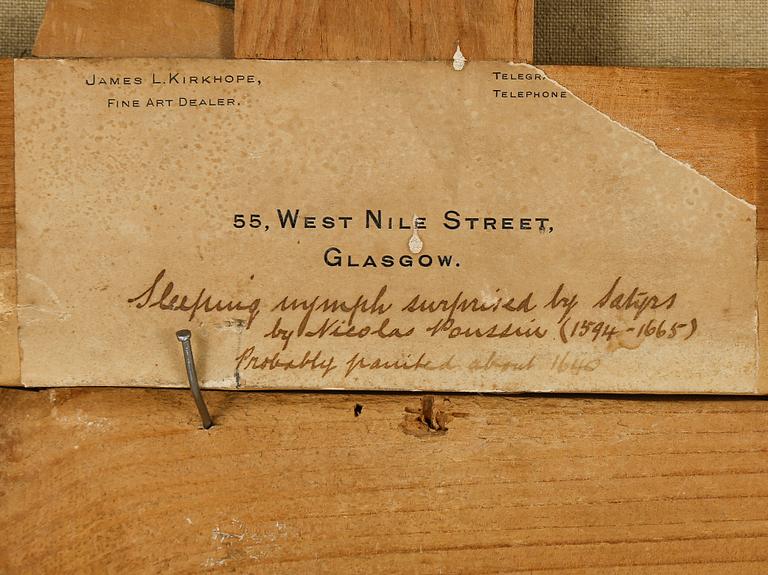 James L. Kirkhope,
Fine Art Dealer.
Telegr
Telephone
55, West Nile Street,
Glasgow.
Sleeping nymph surprised by Satyrs
by Nicolas Poussin (1594-1665)
Probably painted about 1640